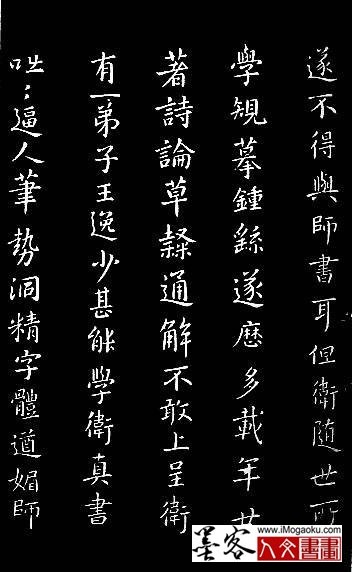 遂不得與師書耳但衛隨世所
學規摹鍾繇遂歷多載年廿
著詩論草隸通解不敢上呈衛
有一弟子王逸少甚能學衛真書
咄〻逼人筆勢洞精字體遒媚師
墨客
www.iMogaoku.com
人文書畫